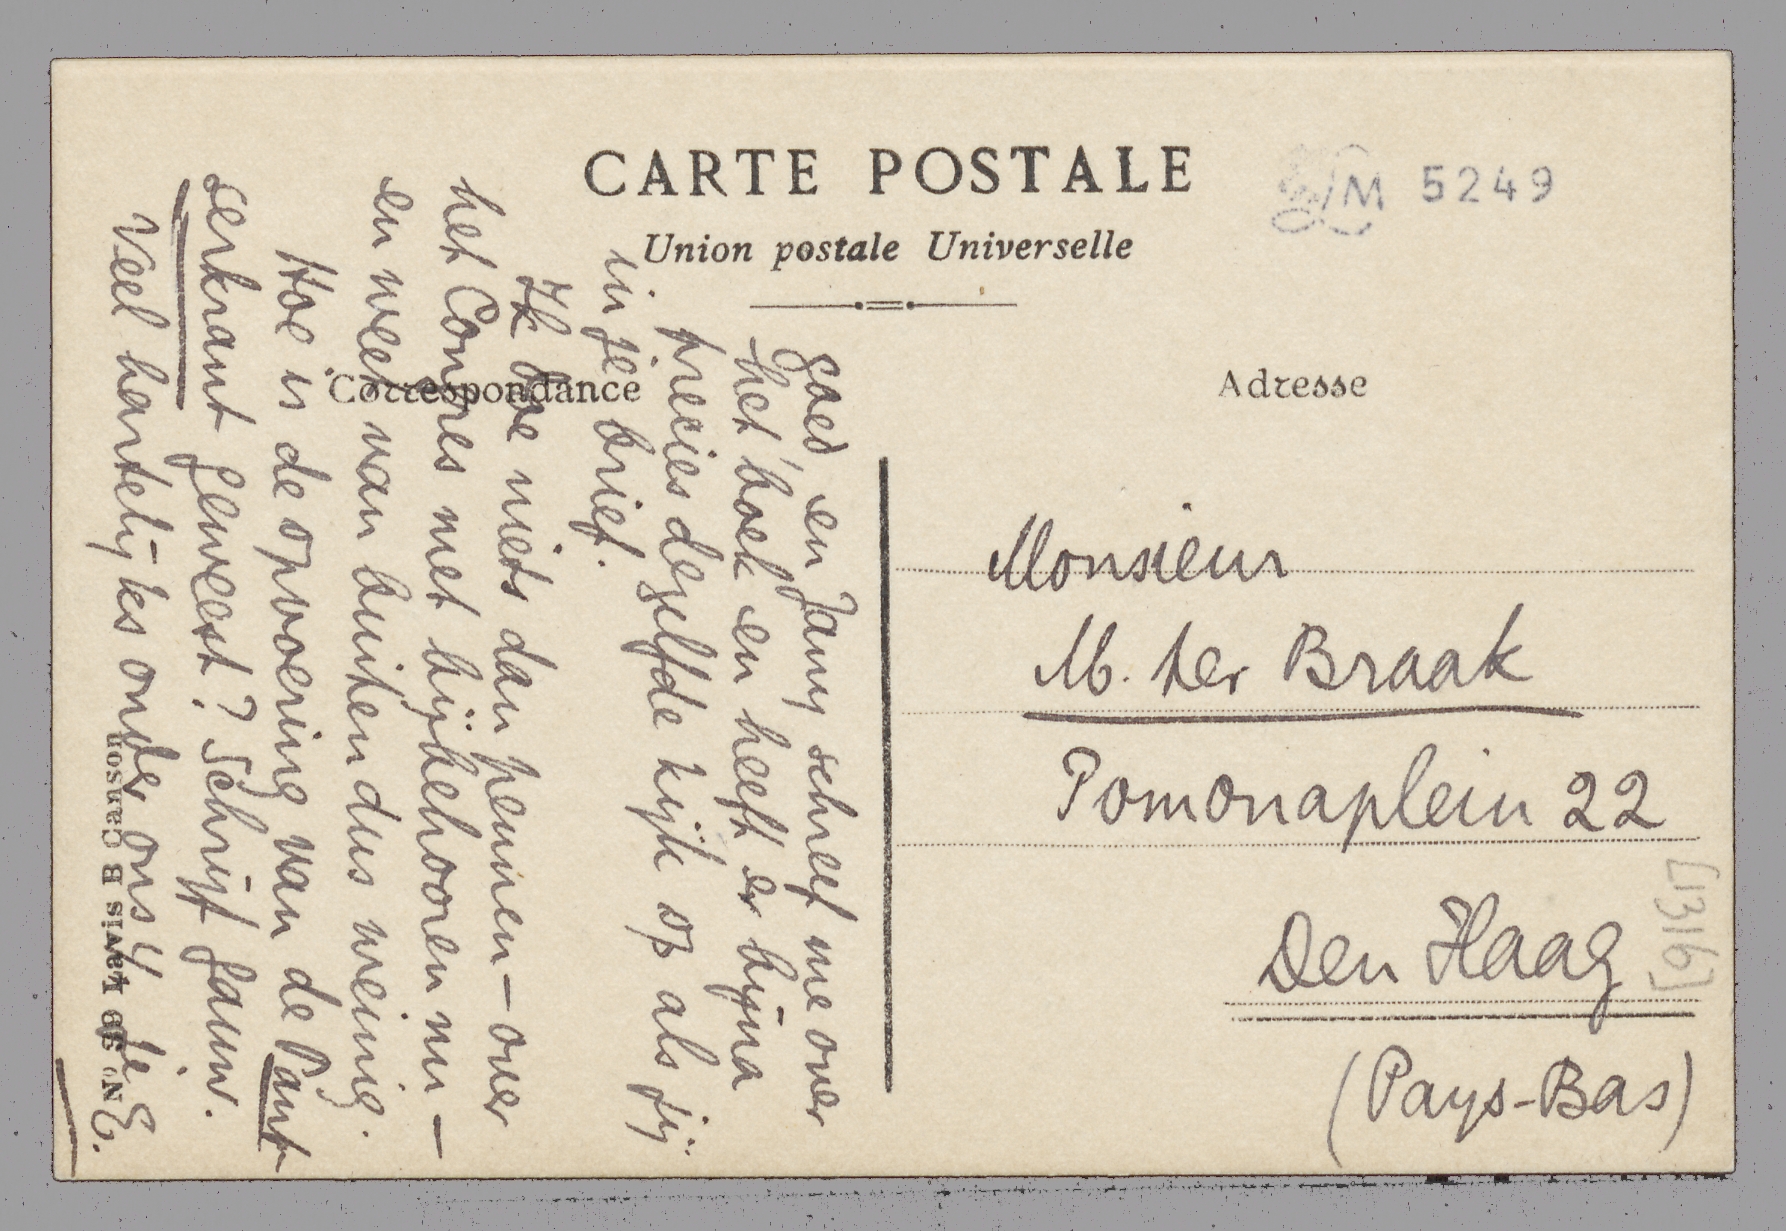 CARTE POSTALE
Union postale Universelle
LM 5249
Correspondance
Adresse
goed en Jany schreef me over
het boek en heeft er bijna
precies dezelfde kijk op als jij
in je brief.
Ik doe niets dan pennen – over
het Congres met bijbehooren in –
en weet van buiten dus weinig.
Hoe is de opvoering van de Pant-
serkrant geweest? Schrijf gauw.
Veel hartelijks onder ons 4, je E.
Monsieur
M. ter Braak
Pomonaplein 22
Den Haag
(Pays-Bas)
[1316]